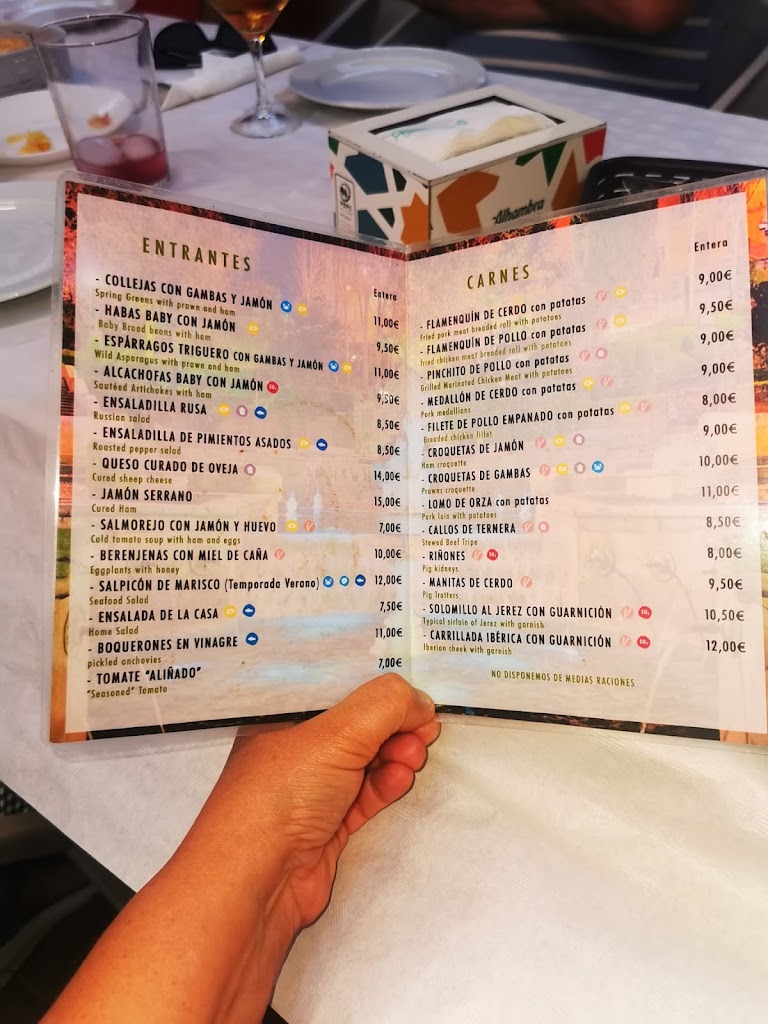 Alhambra
ENTRANTES
Entera
- COLLEJAS CON GAMBAS Y JAMÓN 11,00€
Spring Greens with prawn and ham
- HABAS BABY CON JAMÓN 9,50€
Baby Broad beans with ham
- ESPÁRRAGOS TRIGUERO CON GAMBAS Y JAMÓN 11,00€
Wild Asparagus with prawn and ham
- ALCACHOFAS BABY CON JAMÓN 9,50€
Sautéed Artichokes with ham
- ENSALADILLA RUSA 8,50€
Russian salad
- ENSALADILLA DE PIMIENTOS ASADOS 8,50€
Roasted pepper salad
- QUESO CURADO DE OVEJA 14,00€
Cured sheep cheese
- JAMÓN SERRANO 15,00€
Cured Ham
- SALMOREJO CON JAMÓN Y HUEVO 7,00€
Cold tomato soup with ham and eggs
- BERENJENAS CON MIEL DE CAÑA 10,00€
Eggplants with honey
- SALPICÓN DE MARISCO (Temporada Verano) 12,00€
Seafood Salad
- ENSALADA DE LA CASA 7,50€
Home Salad
- BOQUERONES EN VINAGRE 11,00€
pickled anchovies
- TOMATE "ALIÑADO" 7,00€
"Seasoned" Tomato
CARNES
Entera
- FLAMENQUÍN DE CERDO con patatas 9,00€
Fried pork meat breaded roll with potatoes
- FLAMENQUÍN DE POLLO con patatas 9,50€
fried chicken meat breaded roll with potatoes
- PINCHITO DE POLLO con patatas 9,00€
Grilled Marinated Chicken Meat with potatoes
- MEDALLÓN DE CERDO con patatas 9,00€
Pork medallions
- FILETE DE POLLO EMPANADO con patatas 8,00€
Breaded chicken fillet
- CROQUETAS DE JAMÓN 9,00€
Ham croquette
- CROQUETAS DE GAMBAS 10,00€
Prawns croquette
- LOMO DE ORZA con patatas 11,00€
Pork loin with potatoes
- CALLOS DE TERNERA 8,50€
Stewed Beef Tripe
- RIÑONES 8,00€
Pig kidneys
- MANITAS DE CERDO 9,50€
Pig Trotters
- SOLOMILLO AL JEREZ CON GUARNICIÓN 10,50€
Typical sirloin of Jerez with garnish
- CARRILLADA IBÉRICA CON GUARNICIÓN 12,00€
Iberian cheek with garnish
NO DISPONEMOS DE MEDIAS RACIONES